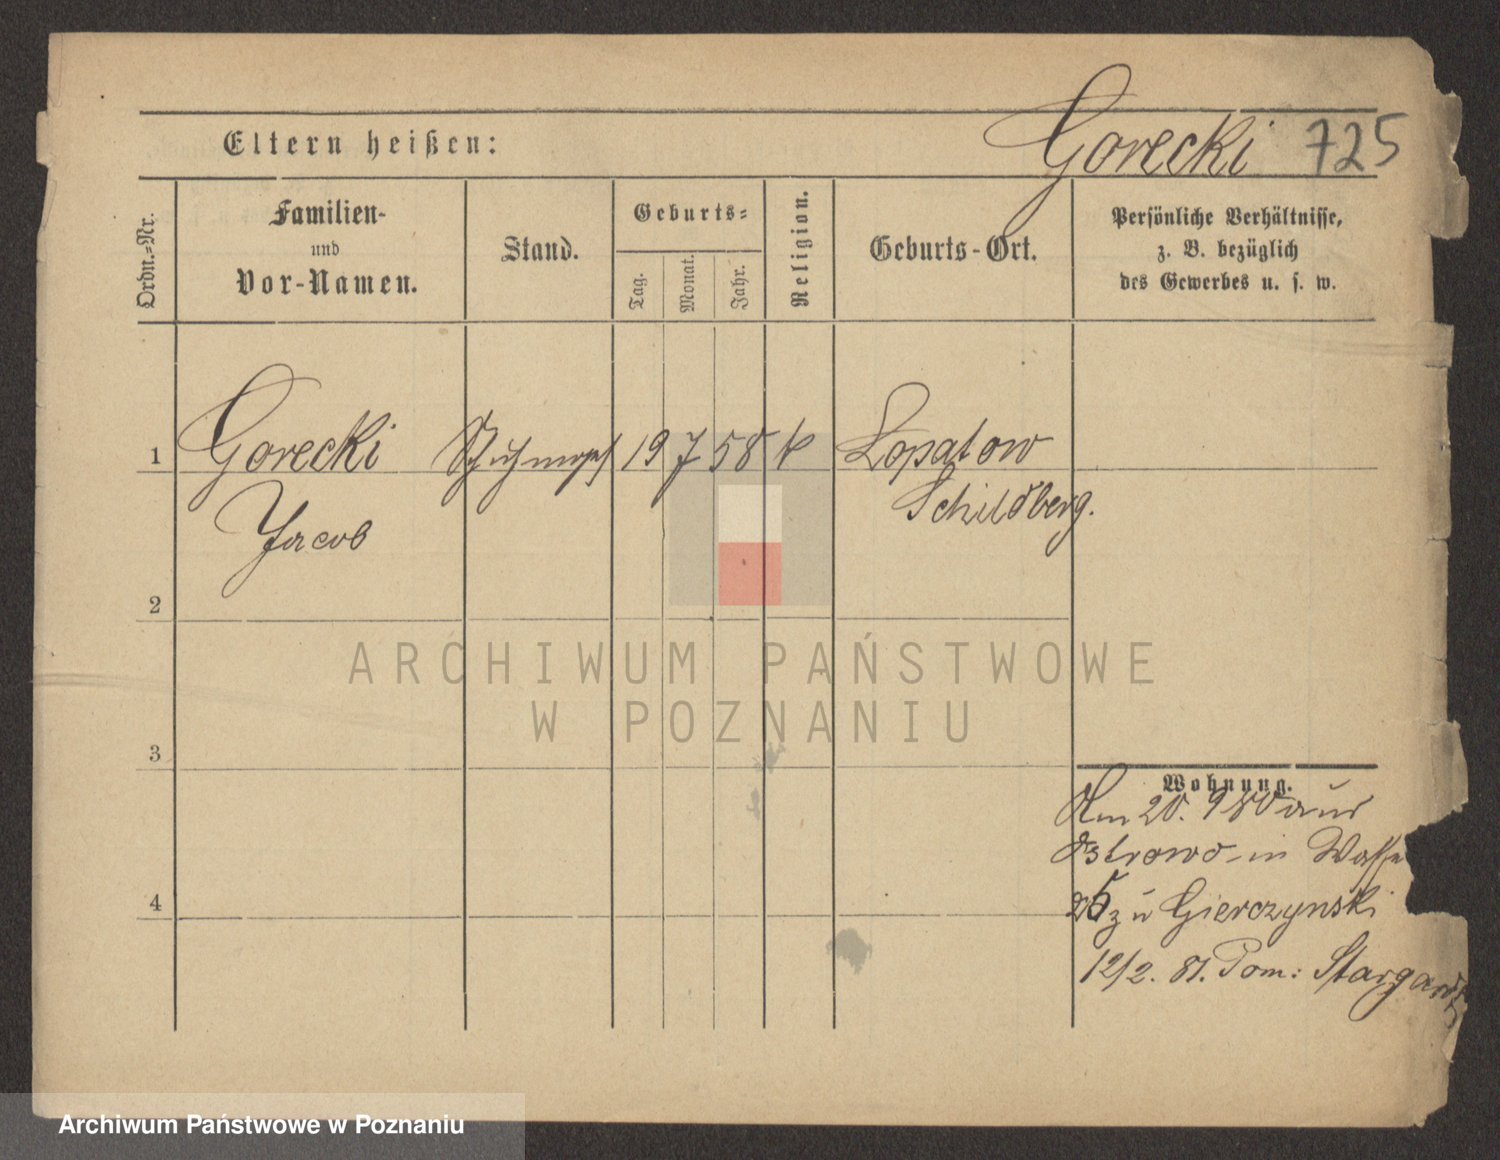 Eltern heißen:
Gorecki 725
Ordn.=Nr.
Familien-
und
Vor-Namen.
Stand.
Geburts=
Tag.
Monat.
Jahr.
Religion.
Geburts-Ort.
Persönliche Verhältnisse,
z. B. bezüglich
des Gewerbes u. s. w.
1 Gorecki 19 7 58 k Lopatow
Schildberg.
Jacob
2
ARCHIWUM PAŃSTWOWE
W POZNANIU
3
Wohnung.
Am 20. 9 80 aus
Ostrowo in Wasser
25 zu Gierczynski
4
12/2. 81. Pom: Stargardt
Archiwum Państwowe w Poznaniu